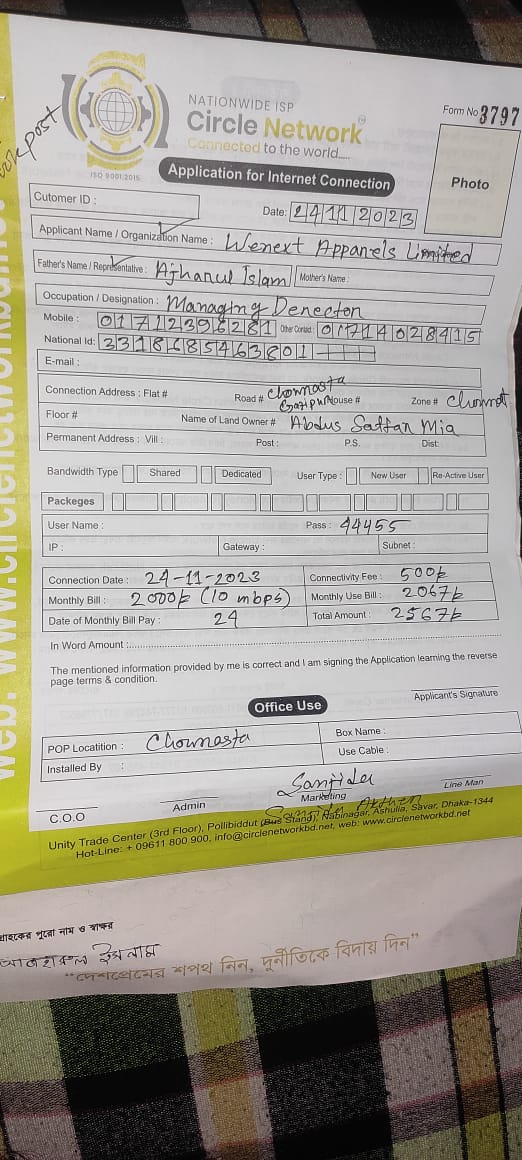 NATIONWIDE ISP
Circle Network
Connected to the world.....
ISO 9001:2015
Form No 3797
Application for Internet Connection
Photo
Cutomer ID :
Date: 24 11 2023
Applicant Name / Organization Name : Wenext Apparels Limited
Father's Name / Representative : Ajhanul Islam Mother's Name :
Occupation / Designation : Managing Director
Mobile : 01712396281 Other Contact : 01714028415
National Id: 3318685463801
E-mail :
Connection Address : Flat # Road # Chowrasta Gazipur House # Zone #
Floor # Name of Land Owner # Abdus Sattar Mia
Permanent Address : Vill : Post : P.S. Dist:
Bandwidth Type Shared Dedicated User Type : New User Re-Active User
Packeges
User Name : Pass : 44455
IP : Gateway : Subnet :
Connection Date : 24-11-2023 Connectivity Fee : 500/=
Monthly Bill : 2000/= (10 mbps) Monthly Use Bill : 2067/=
Date of Monthly Bill Pay : 24 Total Amount : 2567/=
In Word Amount :
The mentioned information provided by me is correct and I am signing the Application learning the reverse
page terms & condition.
Applicant's Signature
Office Use
POP Locatition : Chowrasta Box Name :
Installed By : Use Cable :
Sanjida
C.O.O Admin Marketing Line Man
Sanjida Akther
Unity Trade Center (3rd Floor), Pollibiddut (Bus Stand), Nabinagar, Ashulia, Savar, Dhaka-1344
Hot-Line: + 09611 800 900, info@circlenetworkbd.net, web: www.circlenetworkbd.net
গ্রাহকের পুরো নাম ও স্বাক্ষর
আজহারুল ইসলাম
“দেশপ্রেমের শপথ নিন, দুর্নীতিকে বিদায় দিন”